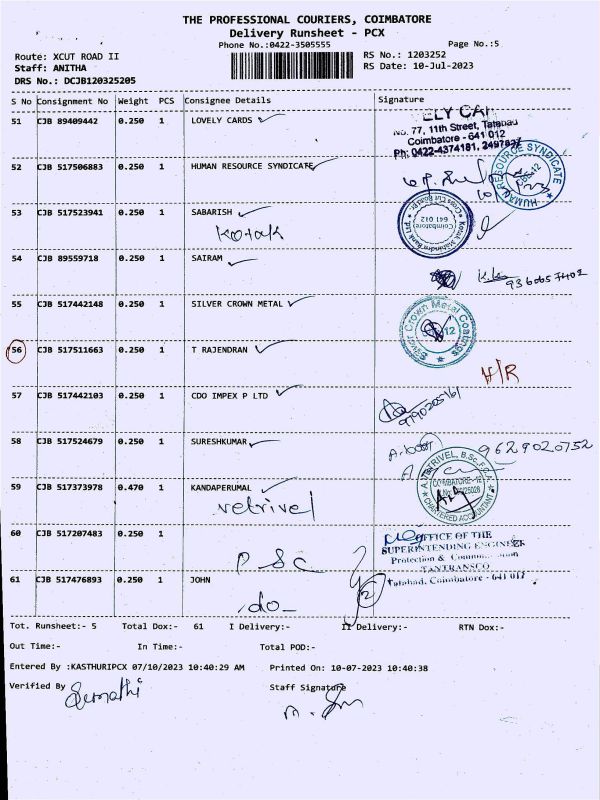 THE PROFESSIONAL COURIERS, COIMBATORE
Delivery Runsheet - PCX
Phone No.:0422-3505555
Page No.:5
Route: XCUT ROAD II
RS No.: 1203252
Staff: ANITHA
RS Date: 10-Jul-2023
DRS No.: DCJB120325205
S No Consignment No Weight PCS Consignee Details Signature
51 CJB 89409442 0.250 1 LOVELY CARDS
No. 77, 11th Street, Tatabad
Coimbatore - 641 012
Ph: 0422-4374181, 2497937
52 CJB 517506883 0.250 1 HUMAN RESOURCE SYNDICATE
HUMAN RESOURCE SYNDICATE
CBE-12
53 CJB 517523941 0.250 1 SABARISH
Kotak
Kotak Mahindra Bank
Coimbatore
641 012
54 CJB 89559718 0.250 1 SAIRAM
55 CJB 517442148 0.250 1 SILVER CROWN METAL
Silver Crown Metal Coatings
56 CJB 517511663 0.250 1 T RAJENDRAN
H/R
57 CJB 517442103 0.250 1 CDO IMPEX P LTD
58 CJB 517524679 0.250 1 SURESHKUMAR
9629020752
59 CJB 517373978 0.470 1 KANDAPERUMAL
vetrivel
CHARTERED ACCOUNTANT
60 CJB 517207483 0.250 1
P SC
OFFICE OF THE
SUPERINTENDING ENGINEER
TANTRANSCO
Tatabad, Coimbatore - 641 012
61 CJB 517476893 0.250 1 JOHN
do
2
Tot. Runsheet:- 5 Total Dox:- 61 I Delivery:- II Delivery:- RTN Dox:-
Out Time:- In Time:- Total POD:-
Entered By :KASTHURIPCX 07/10/2023 10:40:29 AM Printed On: 10-07-2023 10:40:38
Verified By Staff Signature